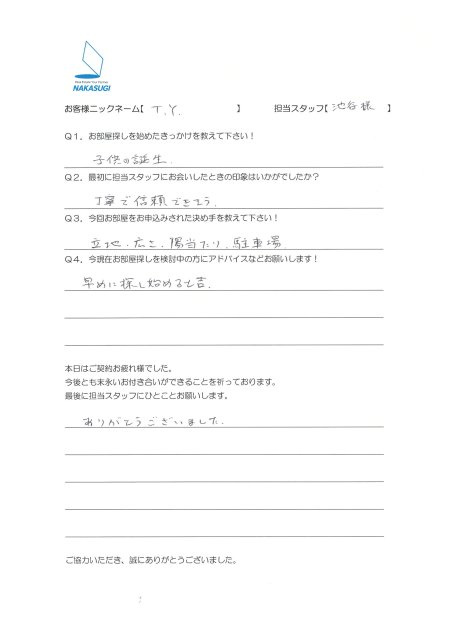 Real Estate Your Partner
NAKASUGI
お客様ニックネーム【 T.Y. 】 担当スタッフ【 池谷様 】
Q1. お部屋探しを始めたきっかけを教えて下さい！
子供の誕生.
Q2. 最初に担当スタッフにお会いしたときの印象はいかがでしたか？
丁寧で信頼できそう.
Q3. 今回お部屋をお申込みされた決め手を教えて下さい！
立地.広さ.陽当たり.駐車場
Q4. 今現在お部屋探しを検討中の方にアドバイスなどお願いします！
早めに探し始めると吉.
本日はご契約お疲れ様でした。
今後とも末永いお付き合いができることを祈っております。
最後に担当スタッフにひとことお願いします。
ありがとうございました.
ご協力いただき、誠にありがとうございました。